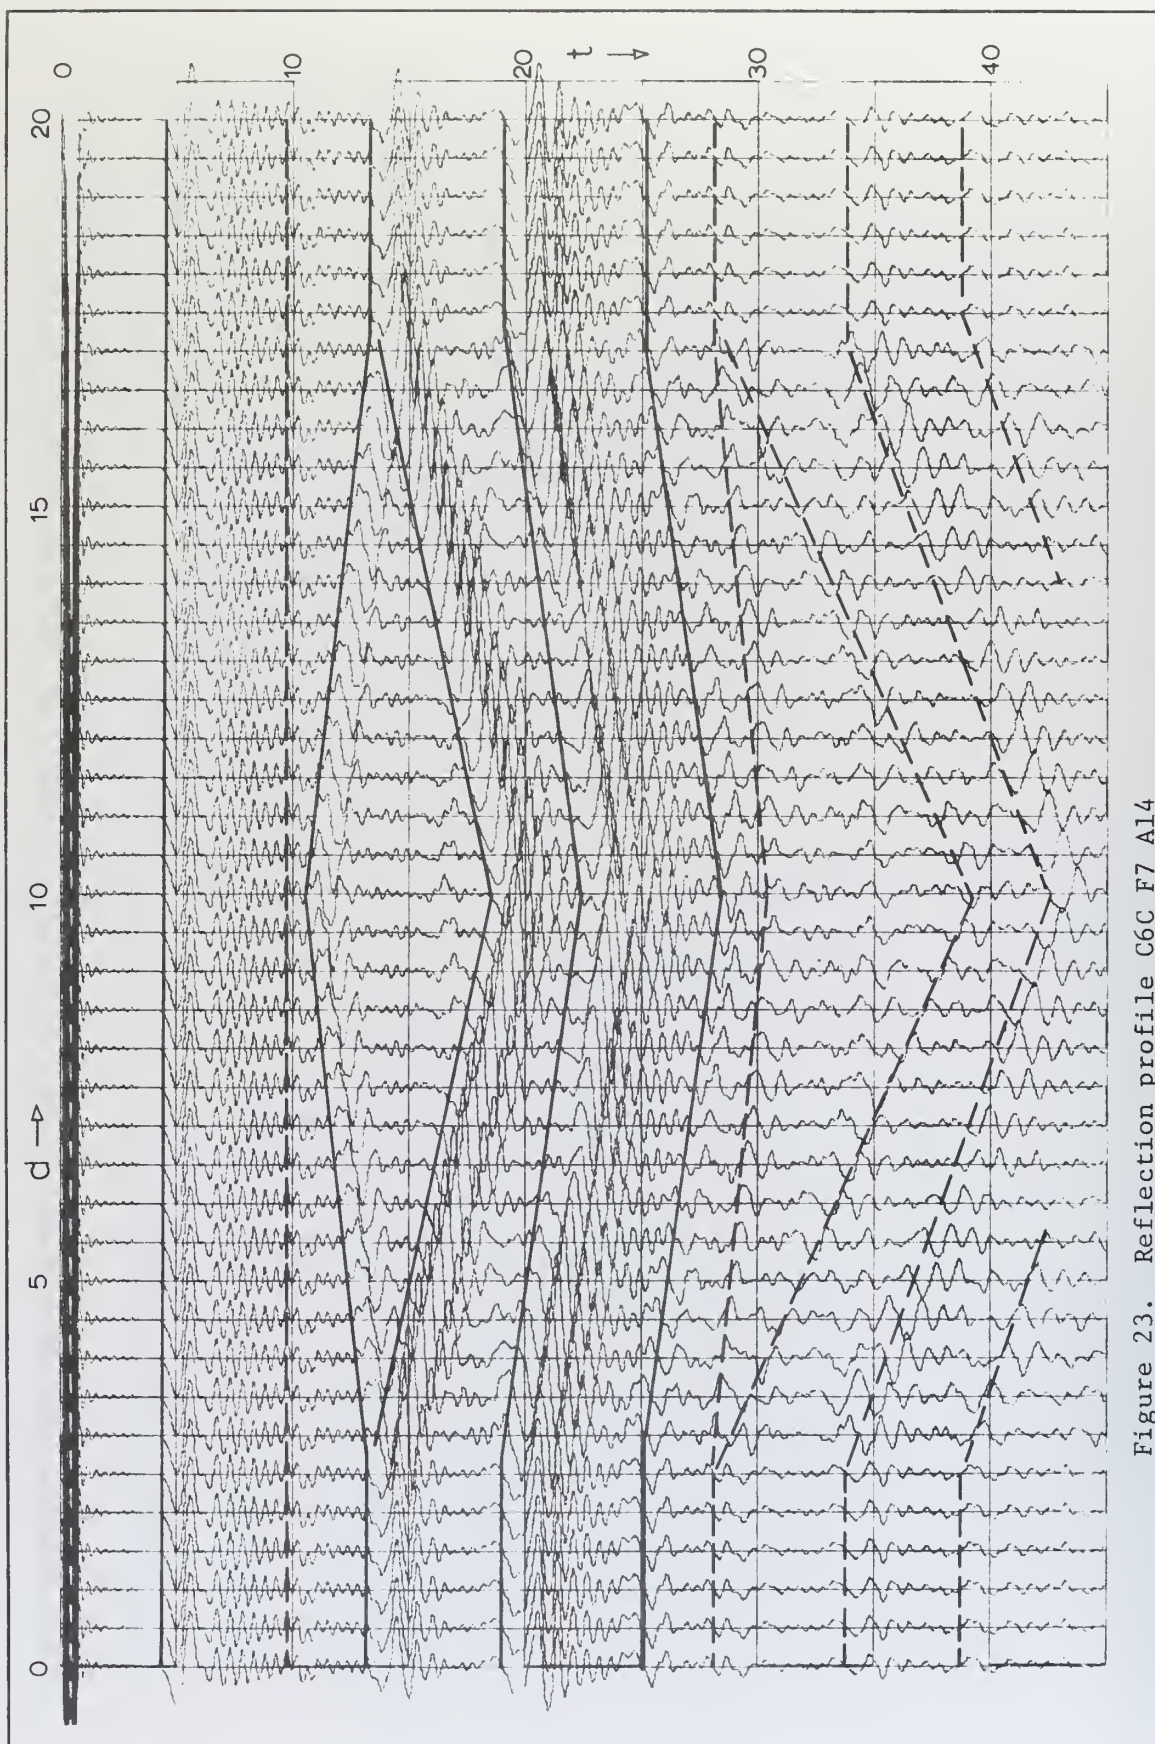 0 5 d 10 15 20
0
10
20
t
30
40
Figure 23. Reflection profile C6C F7 A14